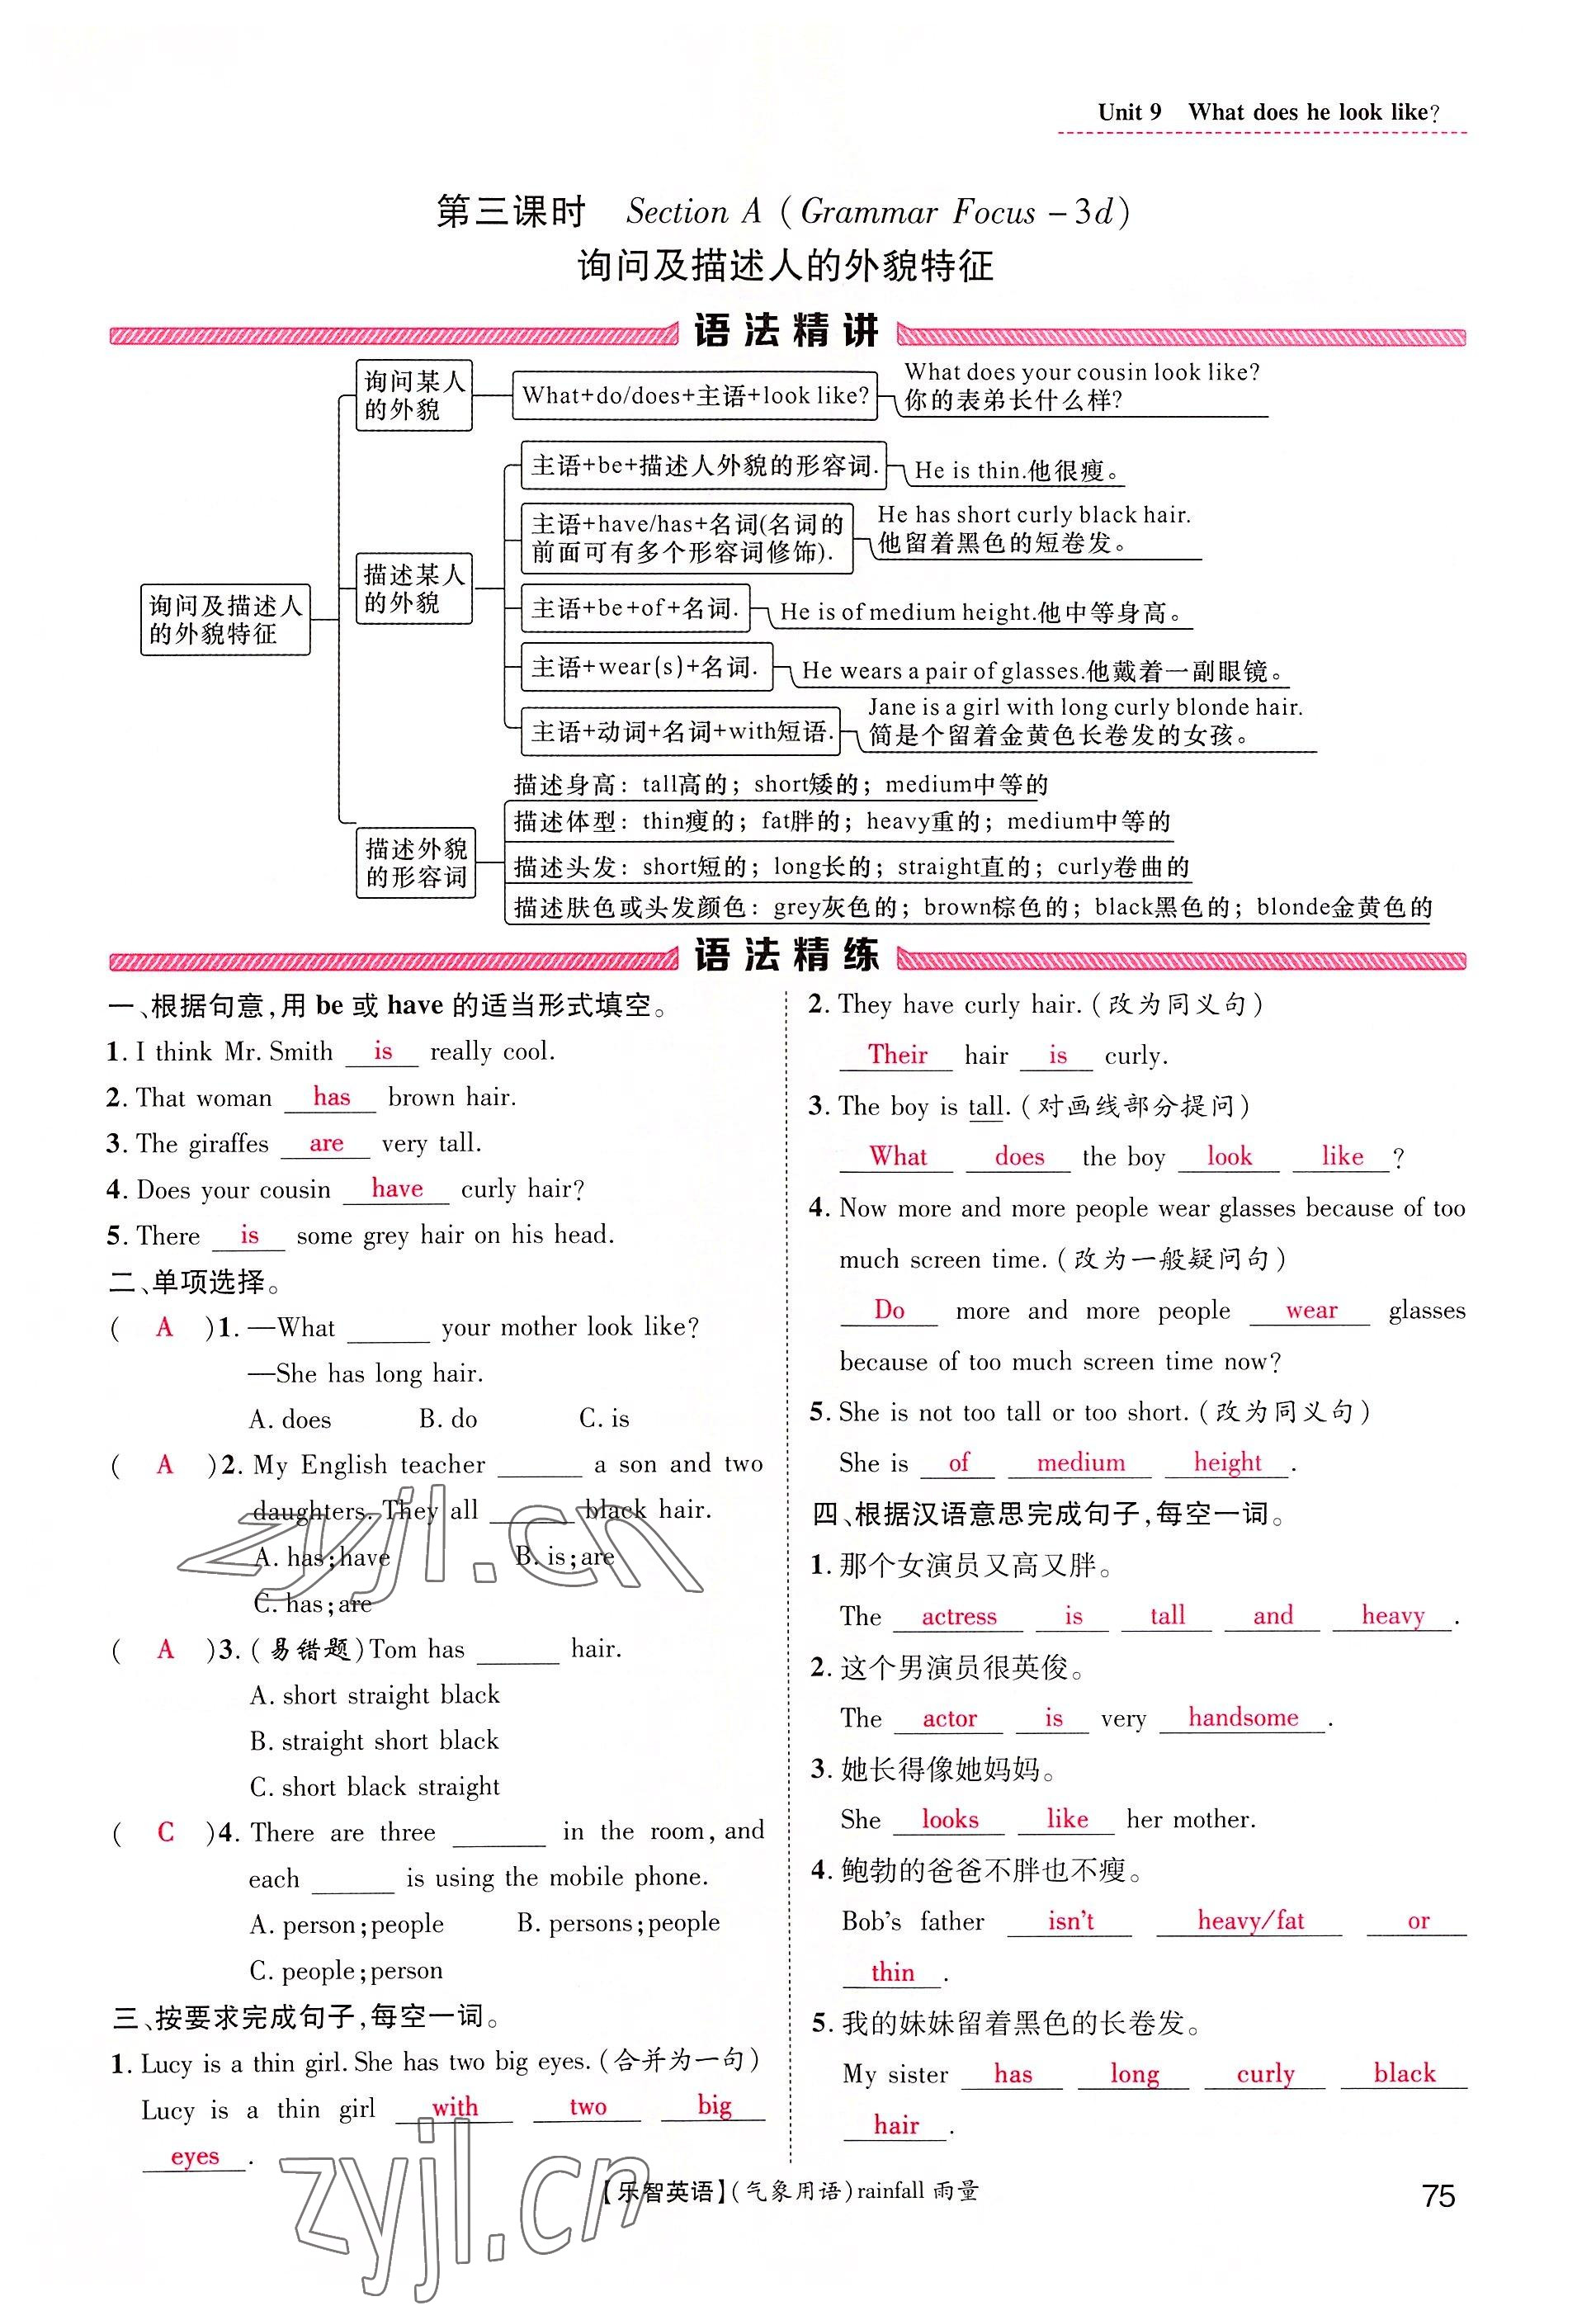 Unit 9 What does he look like?
第三课时 Section A (Grammar Focus – 3d)
询问及描述人的外貌特征
语法精讲
询问及描述人
的外貌特征
询问某人
的外貌
What+do/does+主语+look like?
What does your cousin look like?
你的表弟长什么样?
描述某人
的外貌
主语+be+描述人外貌的形容词.
He is thin.他很瘦。
主语+have/has+名词(名词的
前面可有多个形容词修饰).
He has short curly black hair.
他留着黑色的短卷发。
主语+be+of+名词.
He is of medium height.他中等身高。
主语+wear(s)+名词.
He wears a pair of glasses.他戴着一副眼镜。
主语+动词+名词+with短语.
Jane is a girl with long curly blonde hair.
简是个留着金黄色长卷发的女孩。
描述外貌
的形容词
描述身高：tall高的；short矮的；medium中等的
描述体型：thin瘦的；fat胖的；heavy重的；medium中等的
描述头发：short短的；long长的；straight直的；curly卷曲的
描述肤色或头发颜色：grey灰色的；brown棕色的；black黑色的；blonde金黄色的
语法精练
一、根据句意,用 be 或 have 的适当形式填空。
1. I think Mr. Smith is really cool.
2. That woman has brown hair.
3. The giraffes are very tall.
4. Does your cousin have curly hair?
5. There is some grey hair on his head.
二、单项选择。
( A )1. —What ______ your mother look like?
—She has long hair.
A. does B. do C. is
( A )2. My English teacher ______ a son and two
daughters. They all ______ black hair.
A. has;have B. is;are
C. has;are
( A )3. (易错题)Tom has ______ hair.
A. short straight black
B. straight short black
C. short black straight
( C )4. There are three ______ in the room, and
each ______ is using the mobile phone.
A. person;people B. persons;people
C. people;person
三、按要求完成句子,每空一词。
1. Lucy is a thin girl. She has two big eyes. (合并为一句)
Lucy is a thin girl with two big
eyes .
2. They have curly hair. (改为同义句)
Their hair is curly.
3. The boy is tall. (对画线部分提问)
What does the boy look like ?
4. Now more and more people wear glasses because of too
much screen time. (改为一般疑问句)
Do more and more people wear glasses
because of too much screen time now?
5. She is not too tall or too short. (改为同义句)
She is of medium height .
四、根据汉语意思完成句子,每空一词。
1. 那个女演员又高又胖。
The actress is tall and heavy .
2. 这个男演员很英俊。
The actor is very handsome .
3. 她长得像她妈妈。
She looks like her mother.
4. 鲍勃的爸爸不胖也不瘦。
Bob's father isn't heavy/fat or
thin .
5. 我的妹妹留着黑色的长卷发。
My sister has long curly black
hair .
zyjl.cn
zyjl.cn
【乐智英语】(气象用语) rainfall 雨量
75